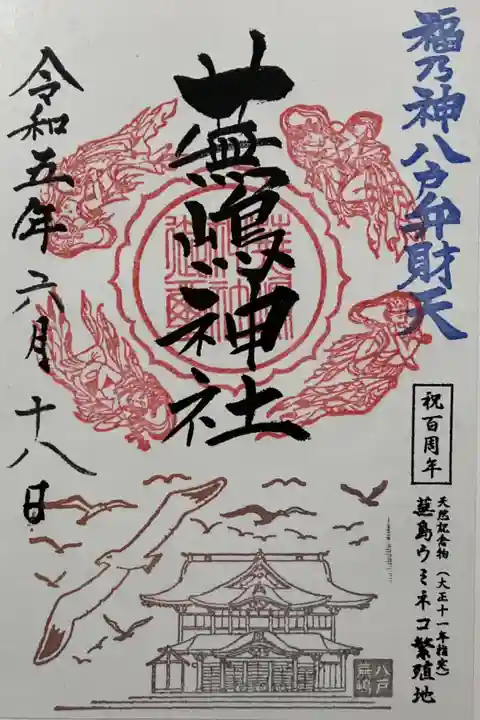 福乃神八戸弁財天
祝百周年
天然記念物(大正十一年指定)
蕪島ウミネコ繁殖地
蕪嶋神社
令和五年六月十八日
八戸
蕪嶋